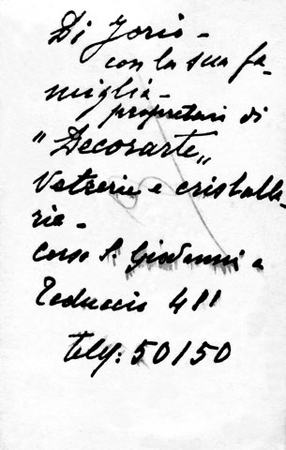 Di Jorio -
con la sua fa-
miglia -
proprietari di
"Decorarte„
Vetrerie e cristalle-
rie -
corso S. Giovanni a
Teduccio 411
telef. 50150